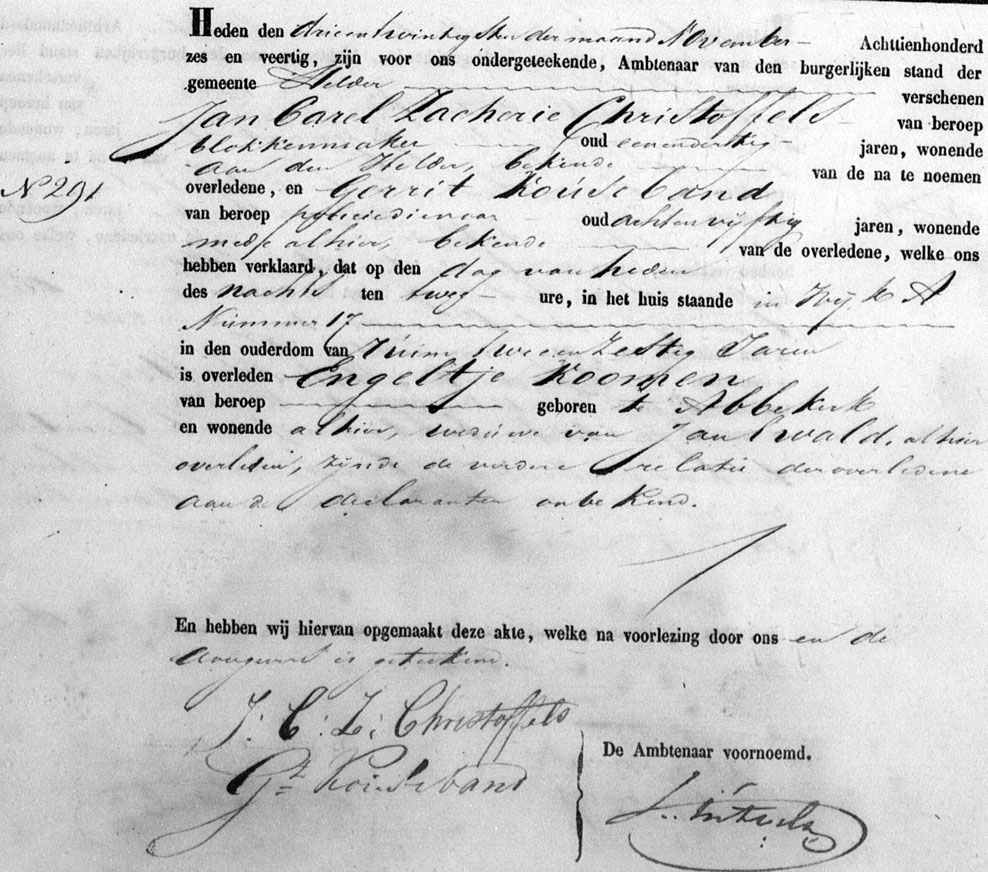 Heden den drieentwintigsten der maand November Achttienhonderd
zes en veertig, zijn voor ons ondergeteekende, Ambtenaar van den burgerlijken stand der
gemeente Helder verschenen
Jan Carel Zacherie Christoffels van beroep
blokkenmaker oud eenendertig jaren, wonende
aan den Helder, bekende van de na te noemen
N 291
overledene, en Gerrit Kouseband
van beroep policiedienaar oud achtenvijftig jaren, wonende
mede alhier, bekende van de overledene, welke ons
hebben verklaard, dat op den dag van heden
des nachts ten twee ure, in het huis staande in Wijk A
Nummer 17
in den ouderdom van ruim tweeenzestig Jaren
is overleden Engeltje Koomen
van beroep geboren te Abbekerk
en wonende alhier, weduwe van Jan Ewald, alhier
overleden, zijnde de verdere relatie der overledene
aan de declaranten onbekend.
En hebben wij hiervan opgemaakt deze akte, welke na voorlezing door ons en de
is geteekend.
J: C: Z: Christoffels
Gt Kouseband
De Ambtenaar voornoemd.